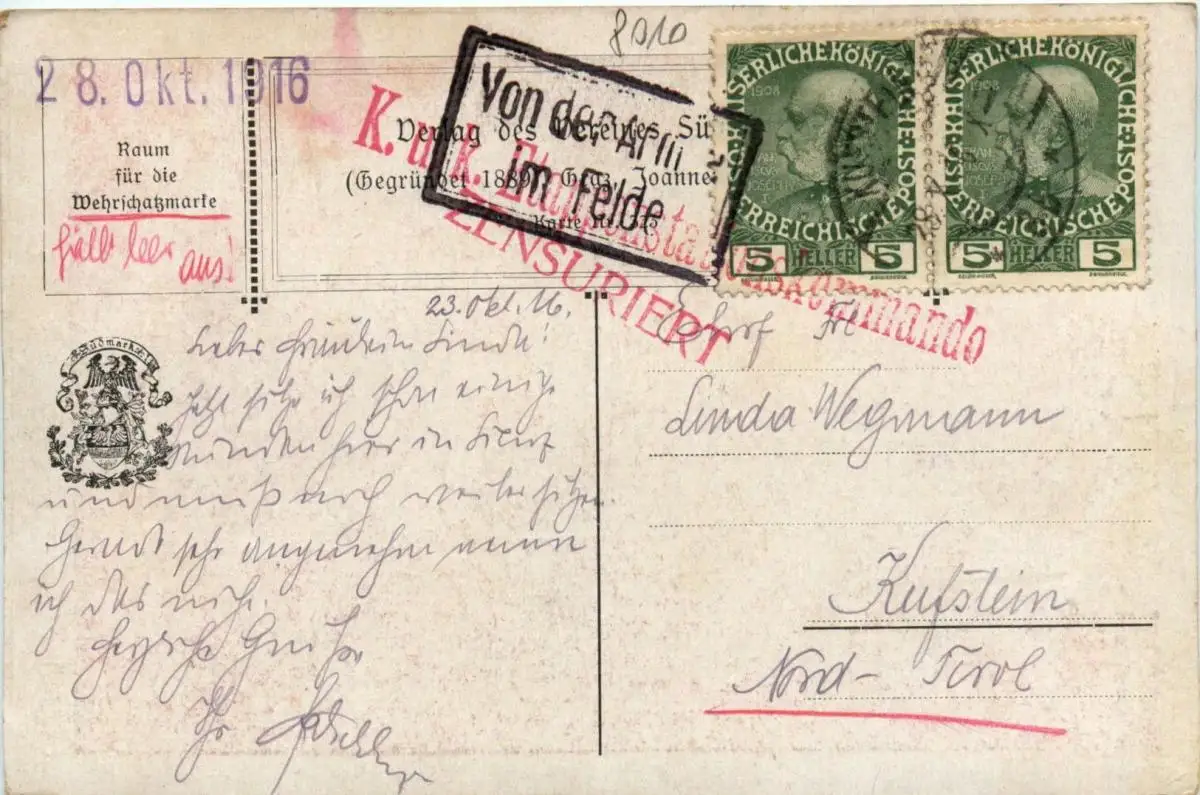 8010
28. Okt. 1916
Raum
für die
Wehrschatzmarke
fällt leer
aus!
Verlag des Vereines Sü
(Gegründet 1889) Graz, Joanne
Karte Nr.
Von der Arm
im Felde
K. u. k. Etappenstationskommando
ZENSURIERT
KAISERLICHEKÖNIGLICHE
ÖSTERREICHISCHEPOST
1908
5 HELLER 5
KAISERLICHEKÖNIGLICHE
ÖSTERREICHISCHEPOST
1908
5 HELLER 5
Südmark
23. Okt. 16.
Liebes Fräulein Linda!
Jetzt sitze ich schon einige
Stunden hier in
und muß noch weiter sitzen.
sehr angenehm
ich das nicht.
Grüße
Ihr
Frl
Linda Wegmann
Kufstein
Nord-Tirol